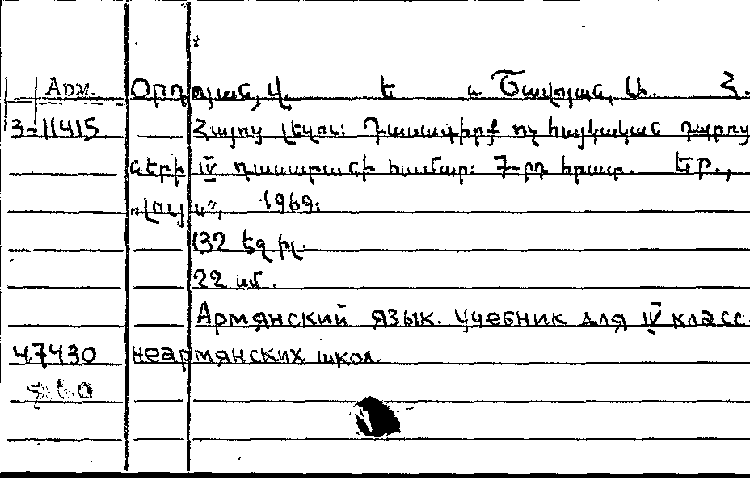 Арм. Օրդոյան, Վ. Ե և Ծավոյան, Ա. Հ.
3-11415 Հայոց լեզու: Դասագիրք ոչ հայկական դպրոց
ների IV դասարանի համար: 7-րդ հրատ. Եր.,
«Լույս», 1969:
132 եջ իլ.
22 սմ.
Армянский язык. Учебник для IV класс.
47430 неармянских школ.